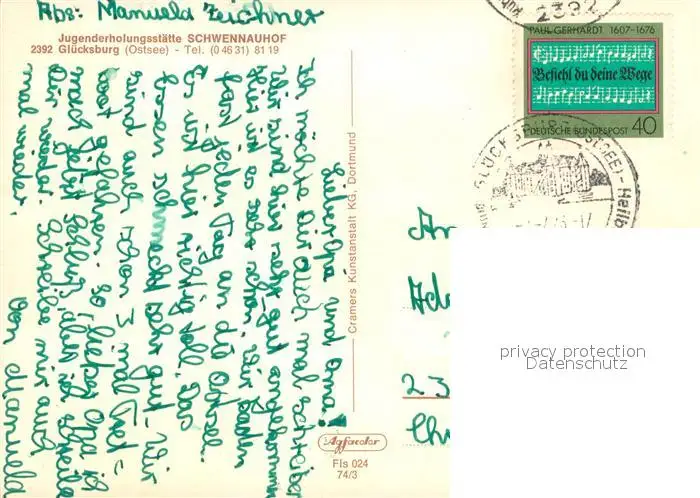 Abs: Manuela Zeichner
Jugenderholungsstätte SCHWENNAUHOF
2392 Glücksburg (Ostsee) - Tel. (0 46 31) 81 19
Lieber Opa und Oma!
Ich möchte dir auch mal schreiben
Wir sind hier recht gut angekommen
Hier ist es sehr schön. Wir baden
fast jeden Tag an die Ostsee.
Es ist hier richtig toll. Das
Essen schmeckt sehr gut. Wir
sind auch schon 3 mal Tret-
boot gefahren. So, lieber Opa ich
mach jetzt Schluß, aber ich schreibe
dir wieder. Schreibe mir auch
mal wieder.
Manuela
Cramers Kunstanstalt KG, Dortmund
Agfacolor
Fls 024
74/3
2392
PAUL GERHARDT 1607-1676
Befiehl du deine Wege
DEUTSCHE BUNDESPOST 40
GLÜCKSBURG (OSTSEE)
Heilb
An
23
privacy protection
Datenschutz